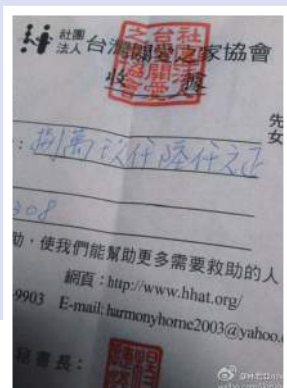 社團
法人 台灣關愛之家協會
收 據
社團法人
台灣關愛
之家協會
先
女
: 捌萬玖仟陸佰元正
308
助，使我們能幫助更多需要救助的人
網頁：http://www.hhat.org/
-9903 E-mail: harmonyhome2003@yahoo.
秘書長：